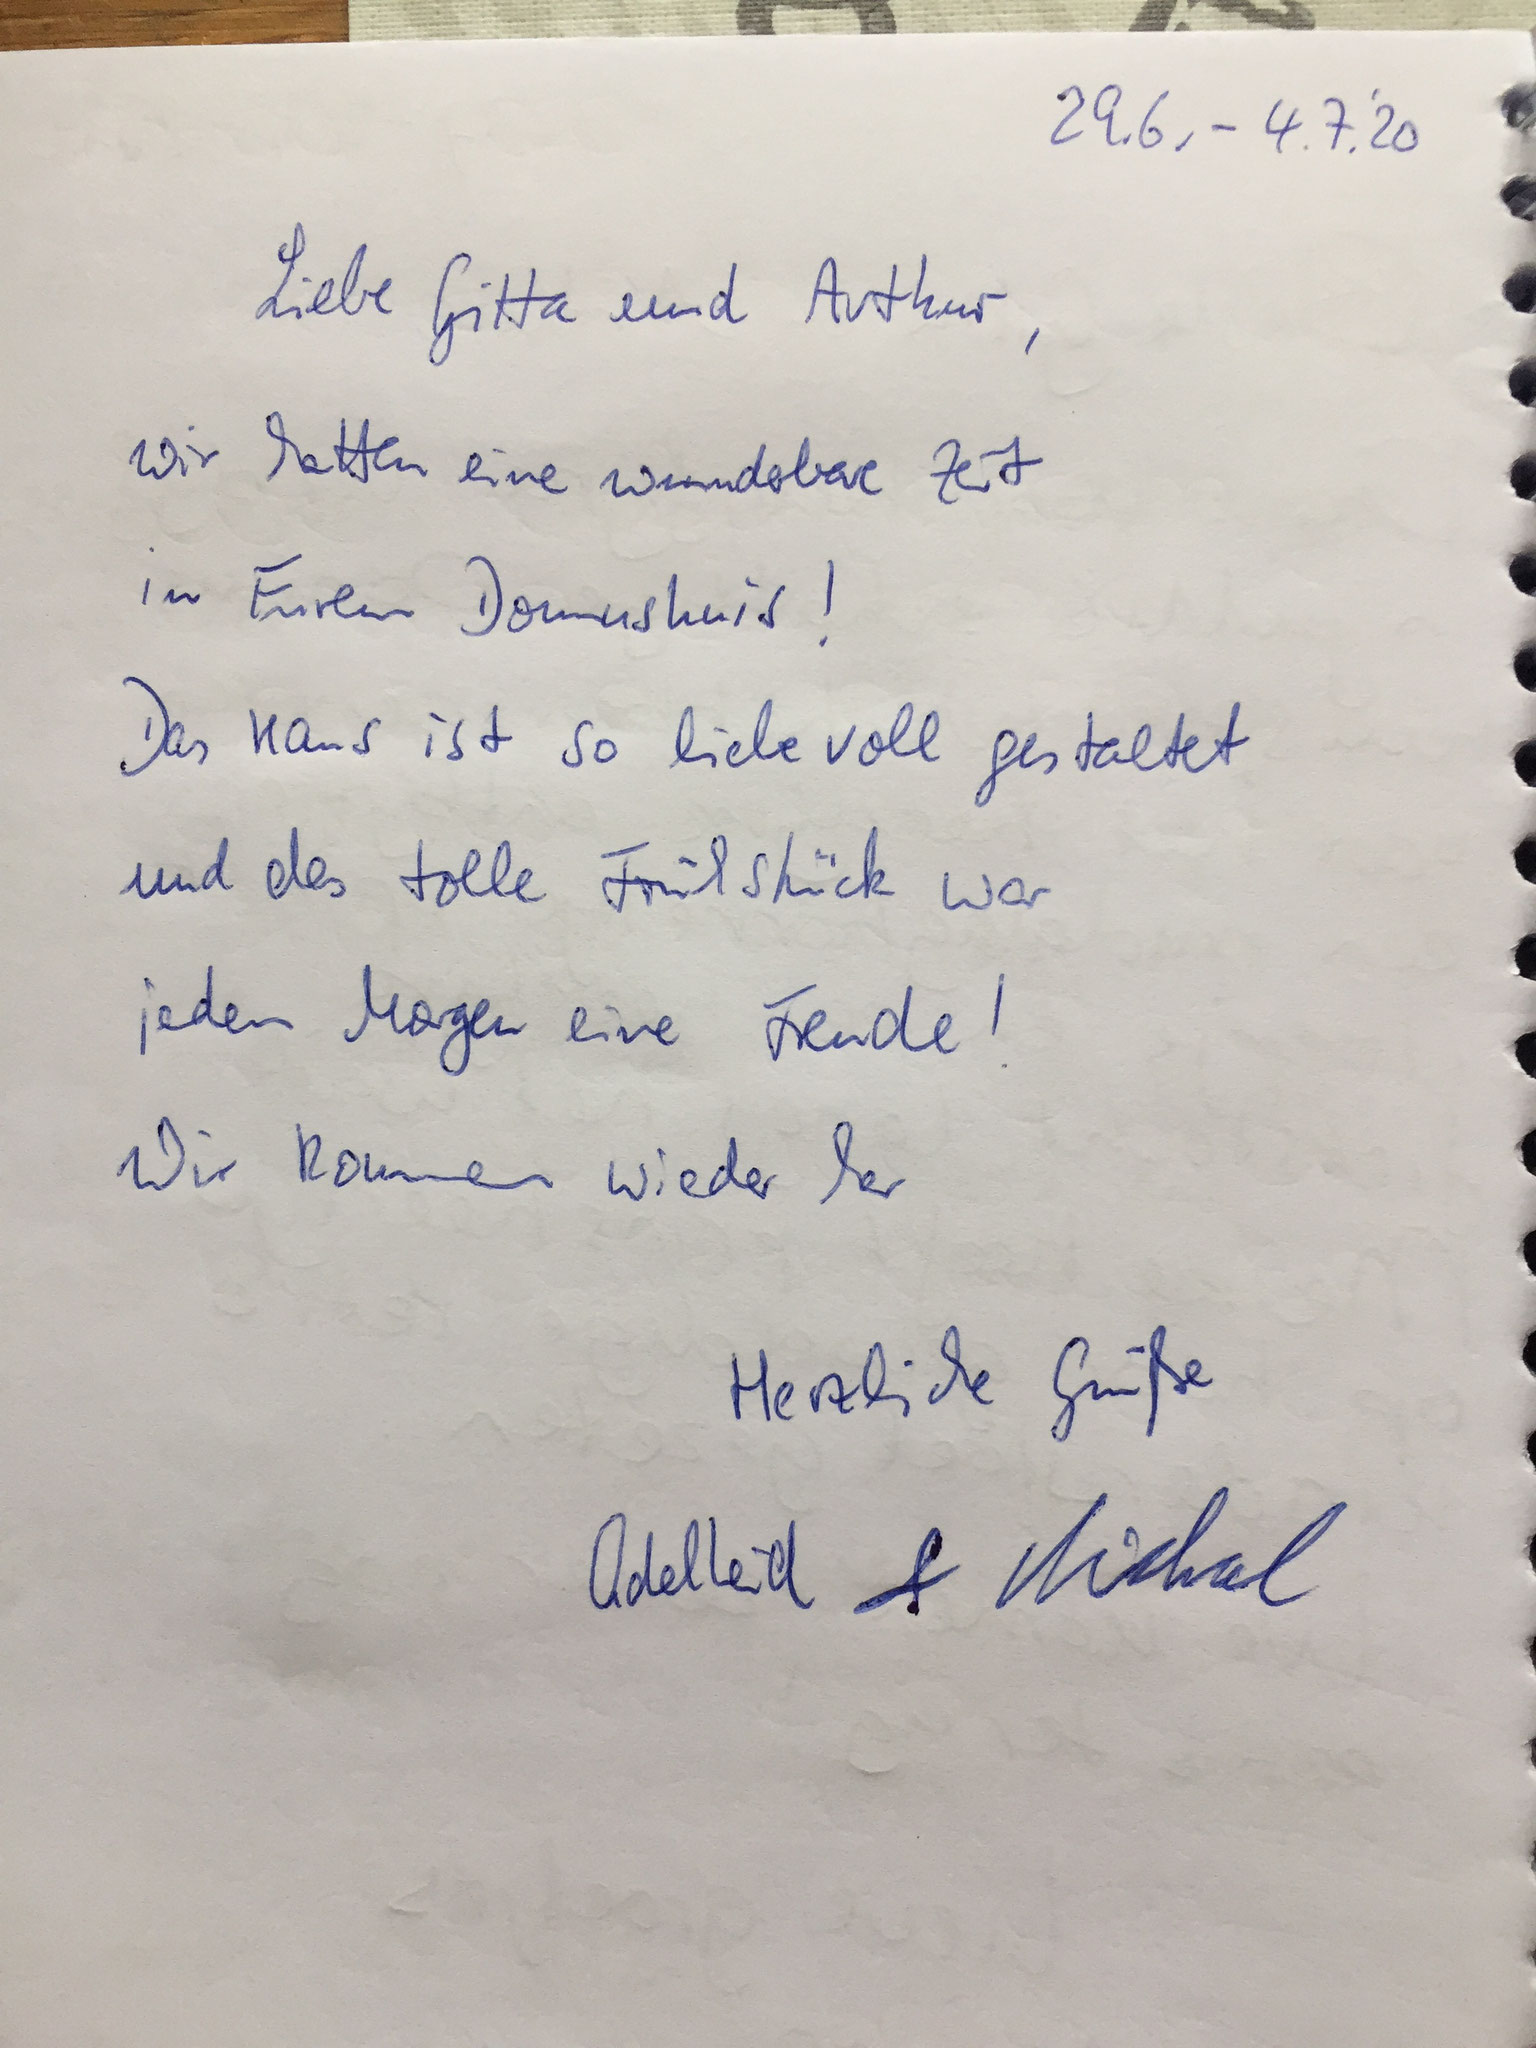 29.6. - 4.7.'20
Liebe Gitta und Arthur,
wir hatten eine wunderbare Zeit
in Eurem Domushuis!
Das Haus ist so liebevoll gestaltet
und das tolle Frühstück war
jeden Morgen eine Freude!
Wir kommen wieder her
Herzliche Grüße
Adelheid & Michael